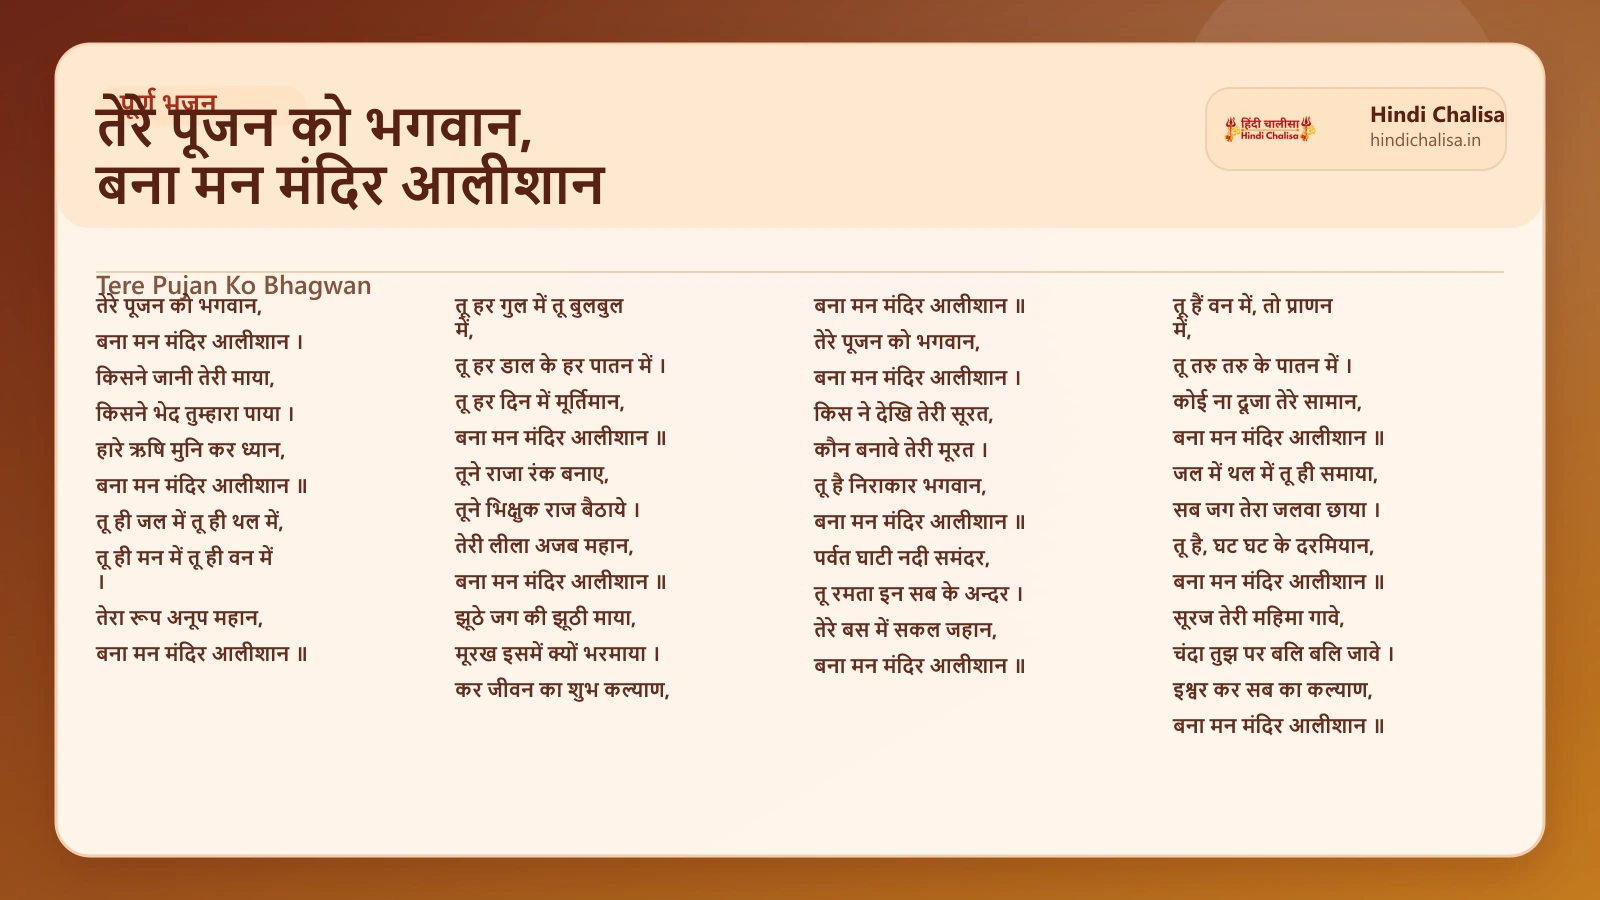 पूर्ण भजन
तेरे पूजन को भगवान,
बना मन मंदिर आलीशान
हिंदी चालीसा
Hindi Chalisa
Hindi Chalisa
hindichalisa.in
Tere Pujan Ko Bhagwan
तेरे पूजन को भगवान,
बना मन मंदिर आलीशान ।
किसने जानी तेरी माया,
किसने भेद तुम्हारा पाया ।
हारे ऋषि मुनि कर ध्यान,
बना मन मंदिर आलीशान ॥
तू ही जल में तू ही थल में,
तू ही मन में तू ही वन में
।
तेरा रूप अनूप महान,
बना मन मंदिर आलीशान ॥
तू हर गुल में तू बुलबुल
में,
तू हर डाल के हर पातन में ।
तू हर दिन में मूर्तिमान,
बना मन मंदिर आलीशान ॥
तूने राजा रंक बनाए,
तूने भिक्षुक राज बैठाये ।
तेरी लीला अजब महान,
बना मन मंदिर आलीशान ॥
झूठे जग की झूठी माया,
मूरख इसमें क्यों भरमाया ।
कर जीवन का शुभ कल्याण,
बना मन मंदिर आलीशान ॥
तेरे पूजन को भगवान,
बना मन मंदिर आलीशान ।
किस ने देखि तेरी सूरत,
कौन बनावे तेरी मूरत ।
तू है निराकार भगवान,
बना मन मंदिर आलीशान ॥
पर्वत घाटी नदी समंदर,
तू रमता इन सब के अन्दर ।
तेरे बस में सकल जहान,
बना मन मंदिर आलीशान ॥
तू हैं वन में, तो प्राणन
में,
तू तरु तरु के पातन में ।
कोई ना दूजा तेरे सामान,
बना मन मंदिर आलीशान ॥
जल में थल में तू ही समाया,
सब जग तेरा जलवा छाया ।
तू है, घट घट के दरमियान,
बना मन मंदिर आलीशान ॥
सूरज तेरी महिमा गावे,
चंदा तुझ पर बलि बलि जावे ।
इश्वर कर सब का कल्याण,
बना मन मंदिर आलीशान ॥